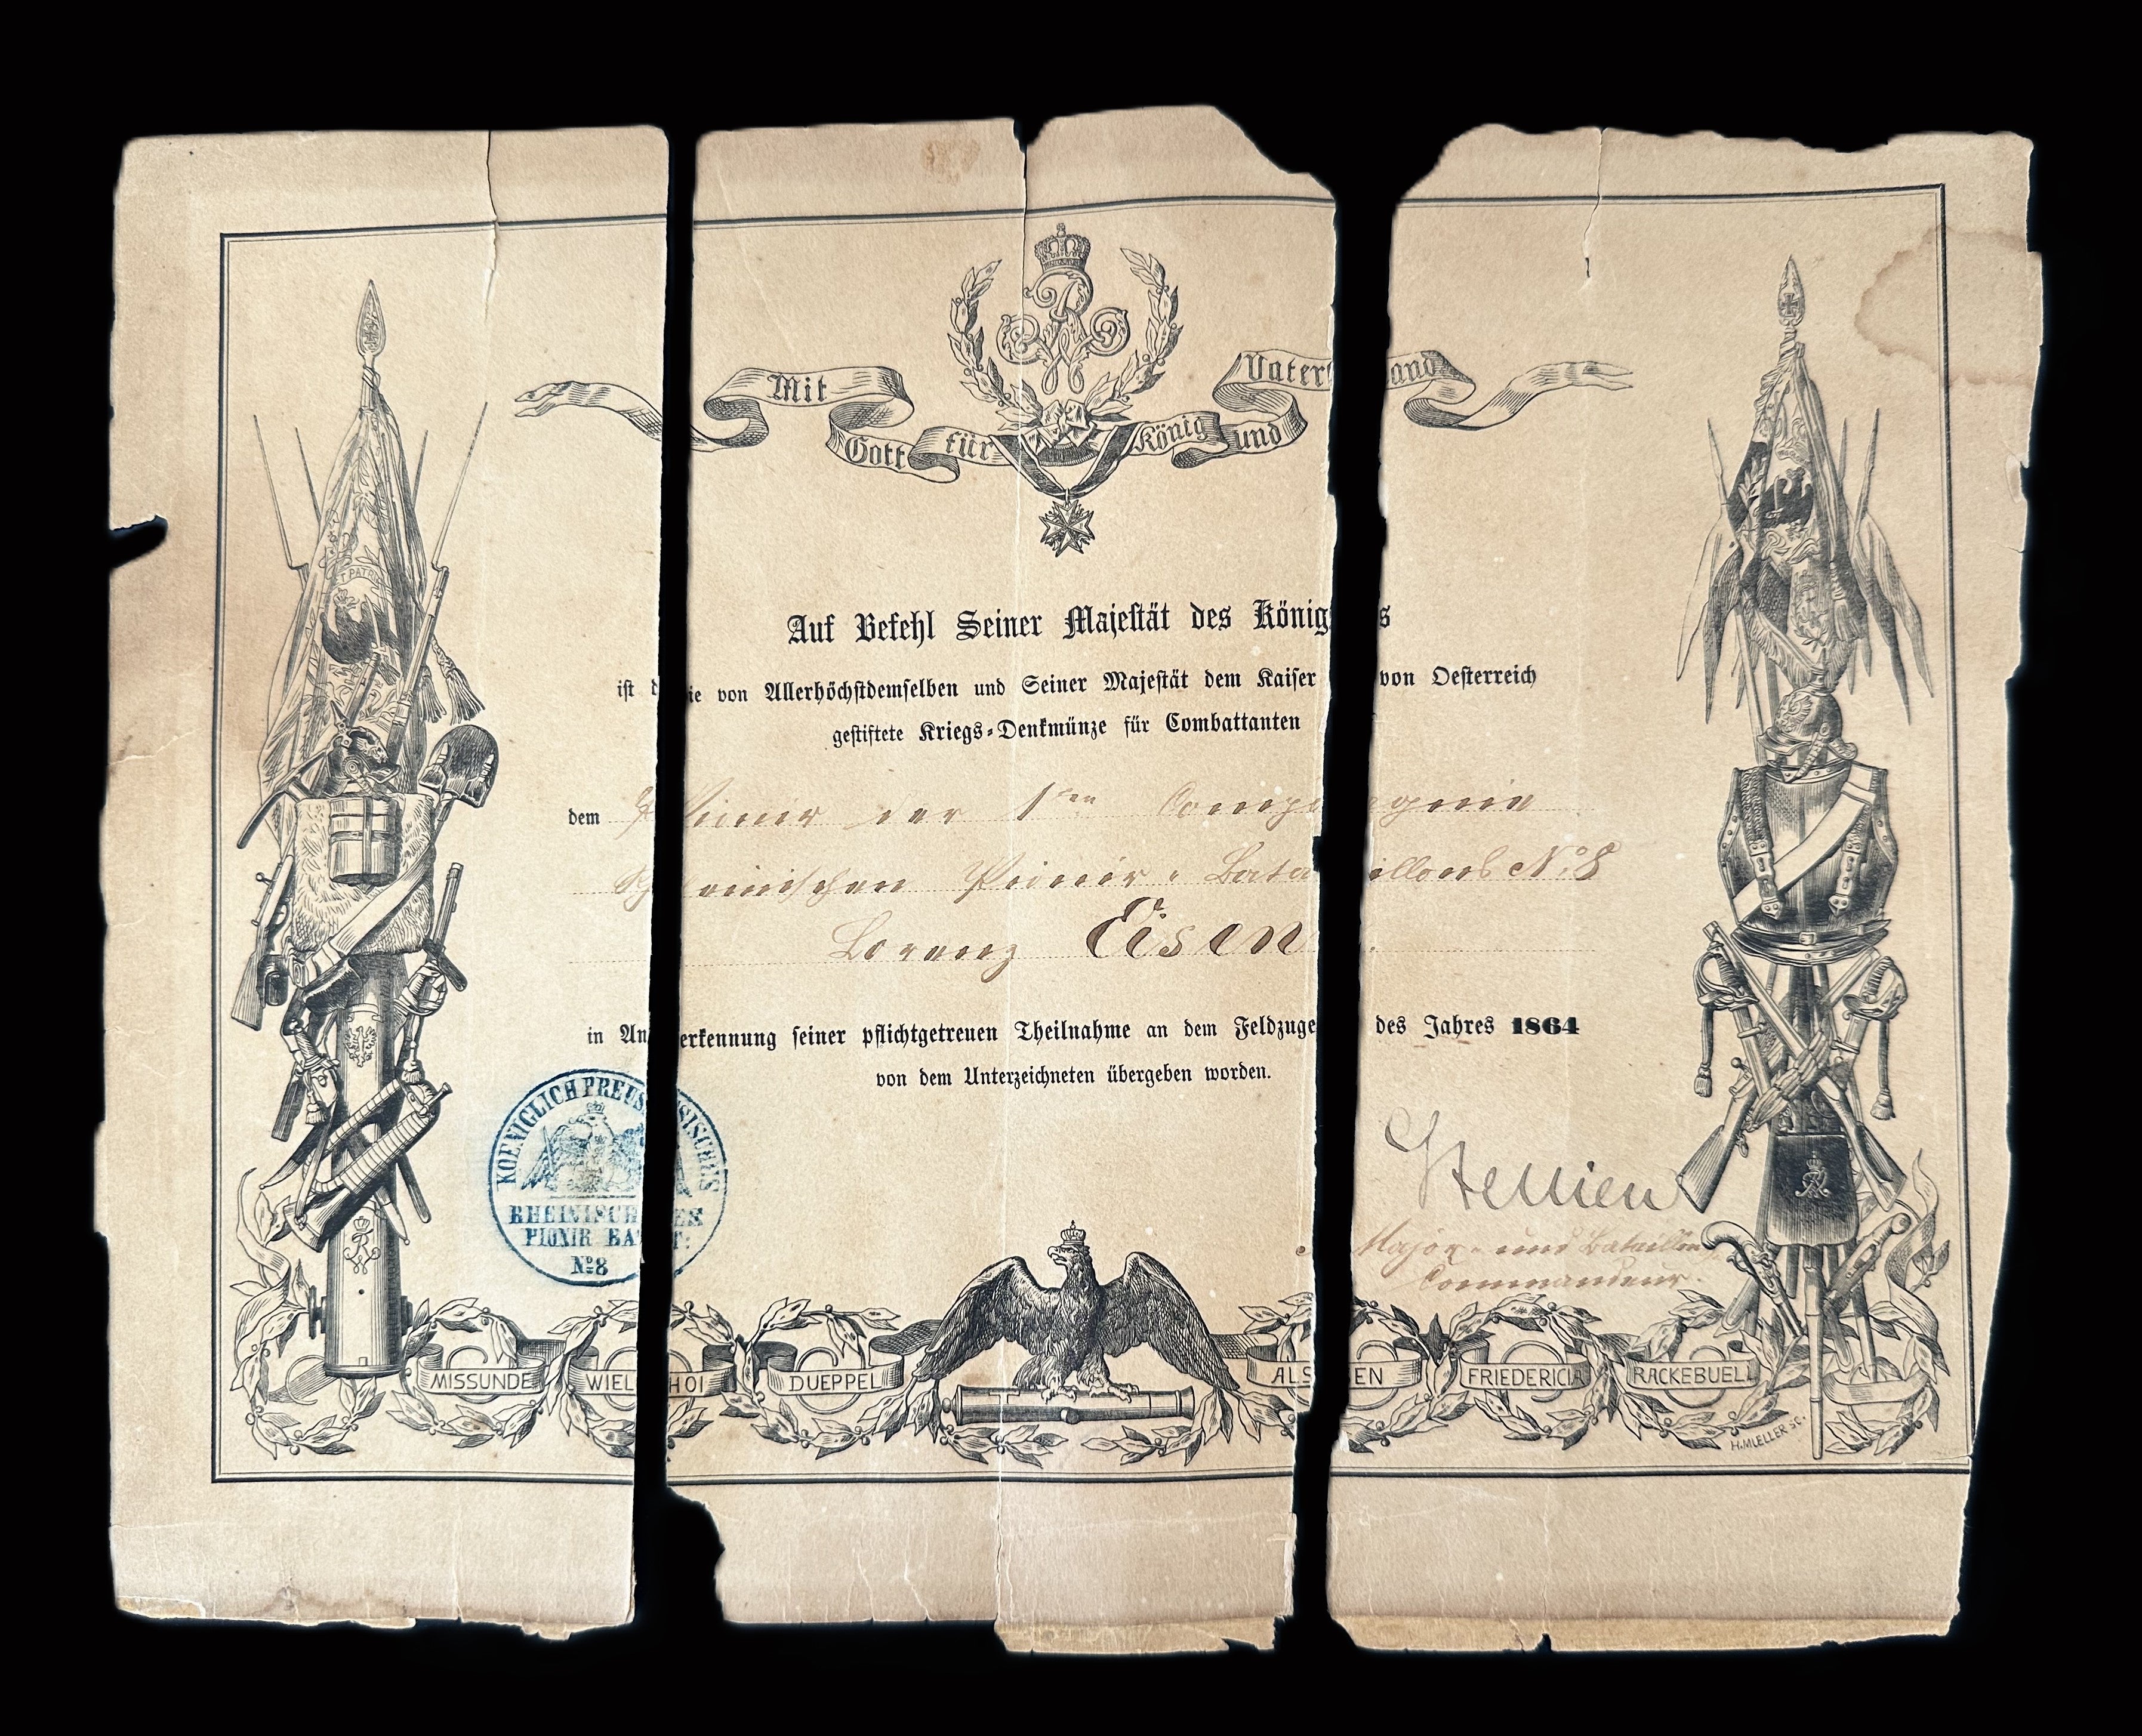 Mit Gott für König und Vaterland
ET PATRI
Auf Befehl Seiner Majestät des Königs
ist die von Allerhöchstdemselben und Seiner Majestät dem Kaiser von Oesterreich
gestiftete Kriegs-Denkmünze für Combattanten
dem Pionier der 1ten Compagnie
Rheinischen Pionir-Bataillons No. 8
Lorenz Eisen
in Anerkennung seiner pflichtgetreuen Theilnahme an dem Feldzuge des Jahres 1864
von dem Unterzeichneten übergeben worden.
KOENIGLICH PREUSSISCHES
RHEINISCHES
PIONIR BAT:
No 8
Major und Bataillons
Commandeur.
MISSUNDE WIELHOI DUEPPEL ALSEN FRIEDERICIA RACKEBUELL
H. MUELLER SC.